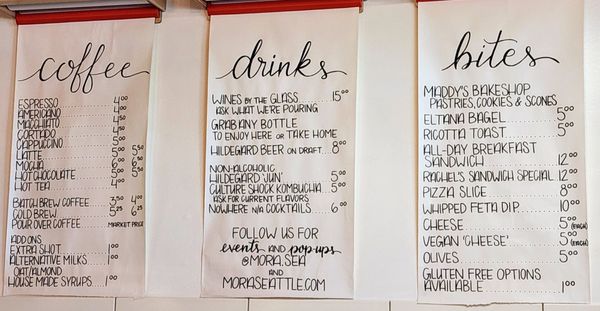 coffee
ESPRESSO 4.00
AMERICANO 4.00
MACCHIATO 4.50
CORTADO 4.50
CAPPUCCINO 5.00
LATTE 5.00 5.50
MOCHA 6.00 6.50
HOT CHOCOLATE 5.00 5.50
HOT TEA 4.00
BATCH BREW COFFEE 3.50 4.00
COLD BREW 5.25 6.25
POUR OVER COFFEE MARKET PRICE
ADD ONS
EXTRA SHOT 1.00
ALTERNATIVE MILKS 1.00
OAT/ALMOND
HOUSE MADE SYRUPS 1.00
drinks
WINES BY THE GLASS 15.00
ASK WHAT WE'RE POURING
GRAB ANY BOTTLE
TO ENJOY HERE OR TAKE HOME
HILDEGARD BEER ON DRAFT 8.00
NON-ALCOHOLIC
HILDEGARD 'JUN' 5.00
CULTURE SHOCK KOMBUCHA 5.00
ASK FOR CURRENT FLAVORS
NOWHERE N/A COCKTAILS 6.00
FOLLOW US FOR
events AND pop-ups
@MORA.SEA
AND
MORASEATTLE.COM
bites
MADDY'S BAKESHOP
PASTRIES, COOKIES & SCONES
ELTANA BAGEL 5.00
RICOTTA TOAST 5.00
ALL-DAY BREAKFAST
SANDWICH 12.00
RACHEL'S SANDWICH SPECIAL 12.00
PIZZA SLICE 8.00
WHIPPED FETA DIP 10.00
CHEESE 5.00 (EACH)
VEGAN 'CHEESE' 5.00 (EACH)
OLIVES 5.00
GLUTEN FREE OPTIONS
AVAILABLE 1.00